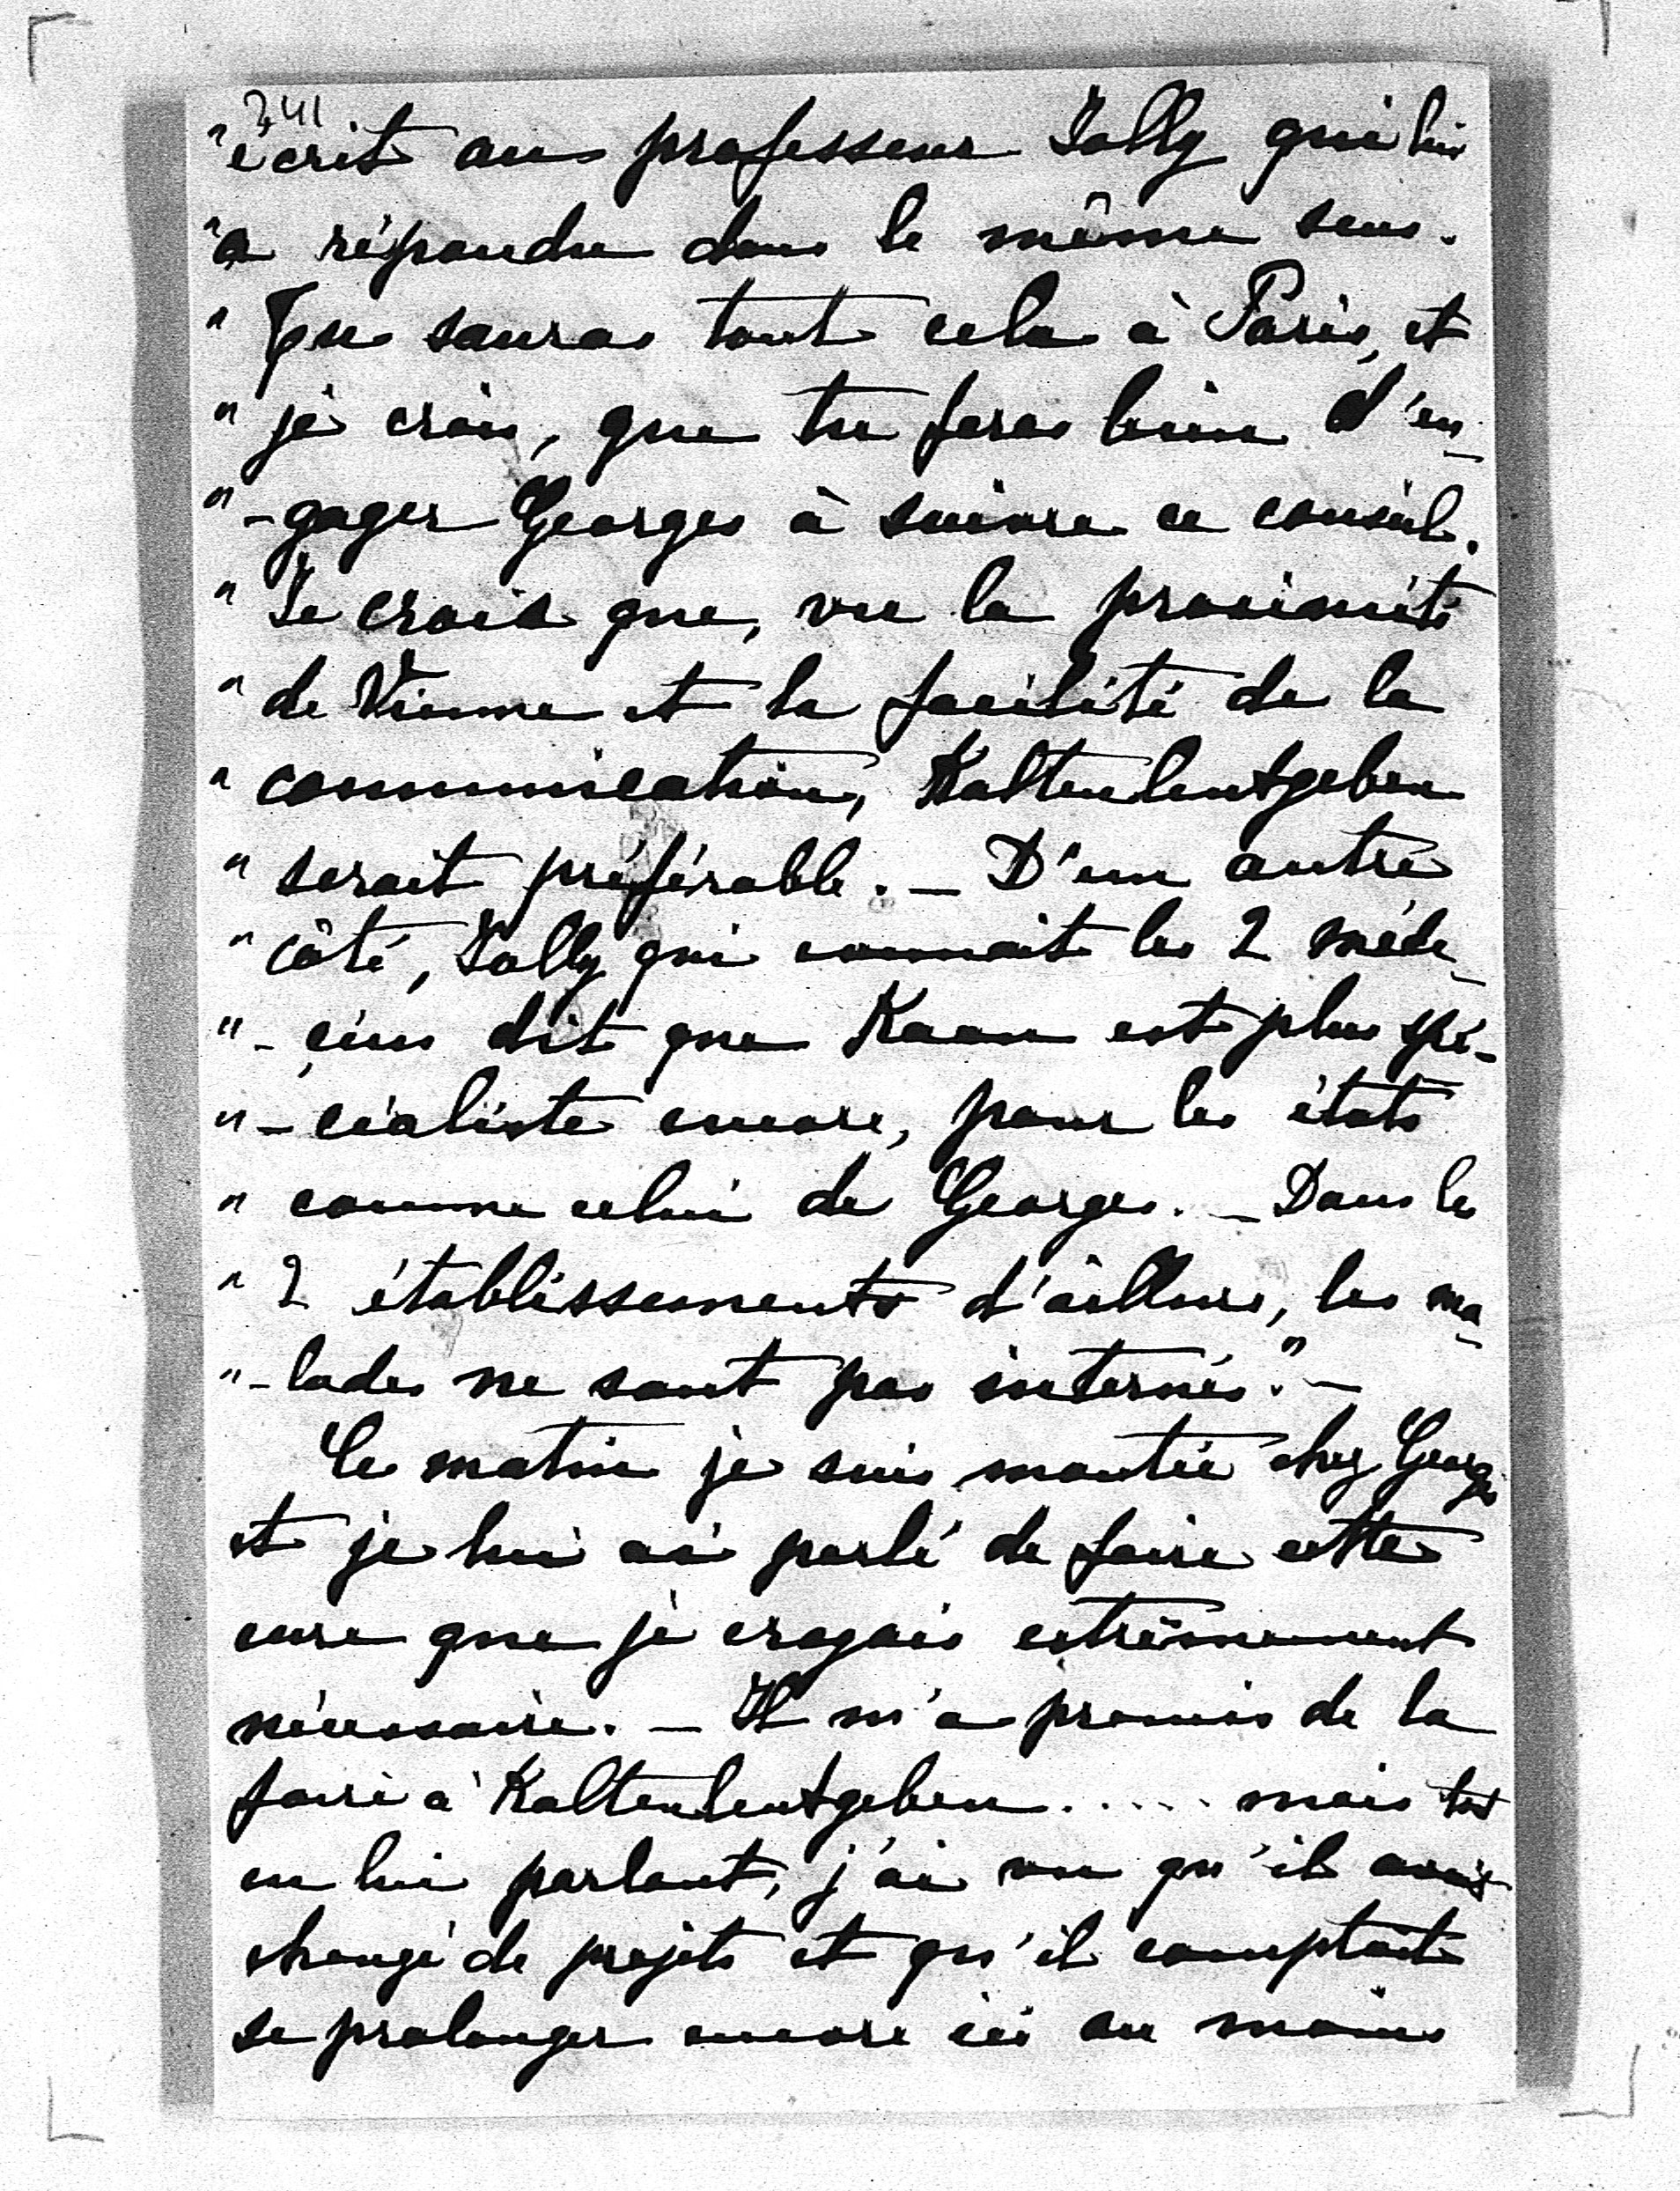 341
"écrit au professeur Jolly qui lui
"a répondu dans le même sens.
" Tu sauras tout cela à Paris, et
" je crois, que tu feras bien d'en-
"-gager Georges à suivre ce conseil.
" Je crois que, vu la proximité
" de Vienne et la facilité de la
" communication, Kaltenleutgeben
" serait préférable. — D'un autre
" côté, Jolly qui connait les 2 méde-
"-cins dit que Kaan est plus spé-
"-cialiste encore, pour les états
" comme celui de Georges. — Dans les
" 2 établissements d'ailleurs, les ma-
"-lades ne sont pas internés." —
Ce matin je suis montée chez Georges
et je lui ai parlé de faire cette
cure que je croyais extrêmement
nécessaire. — Il m'a promis de la
faire à Kaltenleutgeben..... mais tout
en lui parlant, j'ai vu qu'il avait
changé de projets et qu'il comptait
se prolonger encore ici au moins